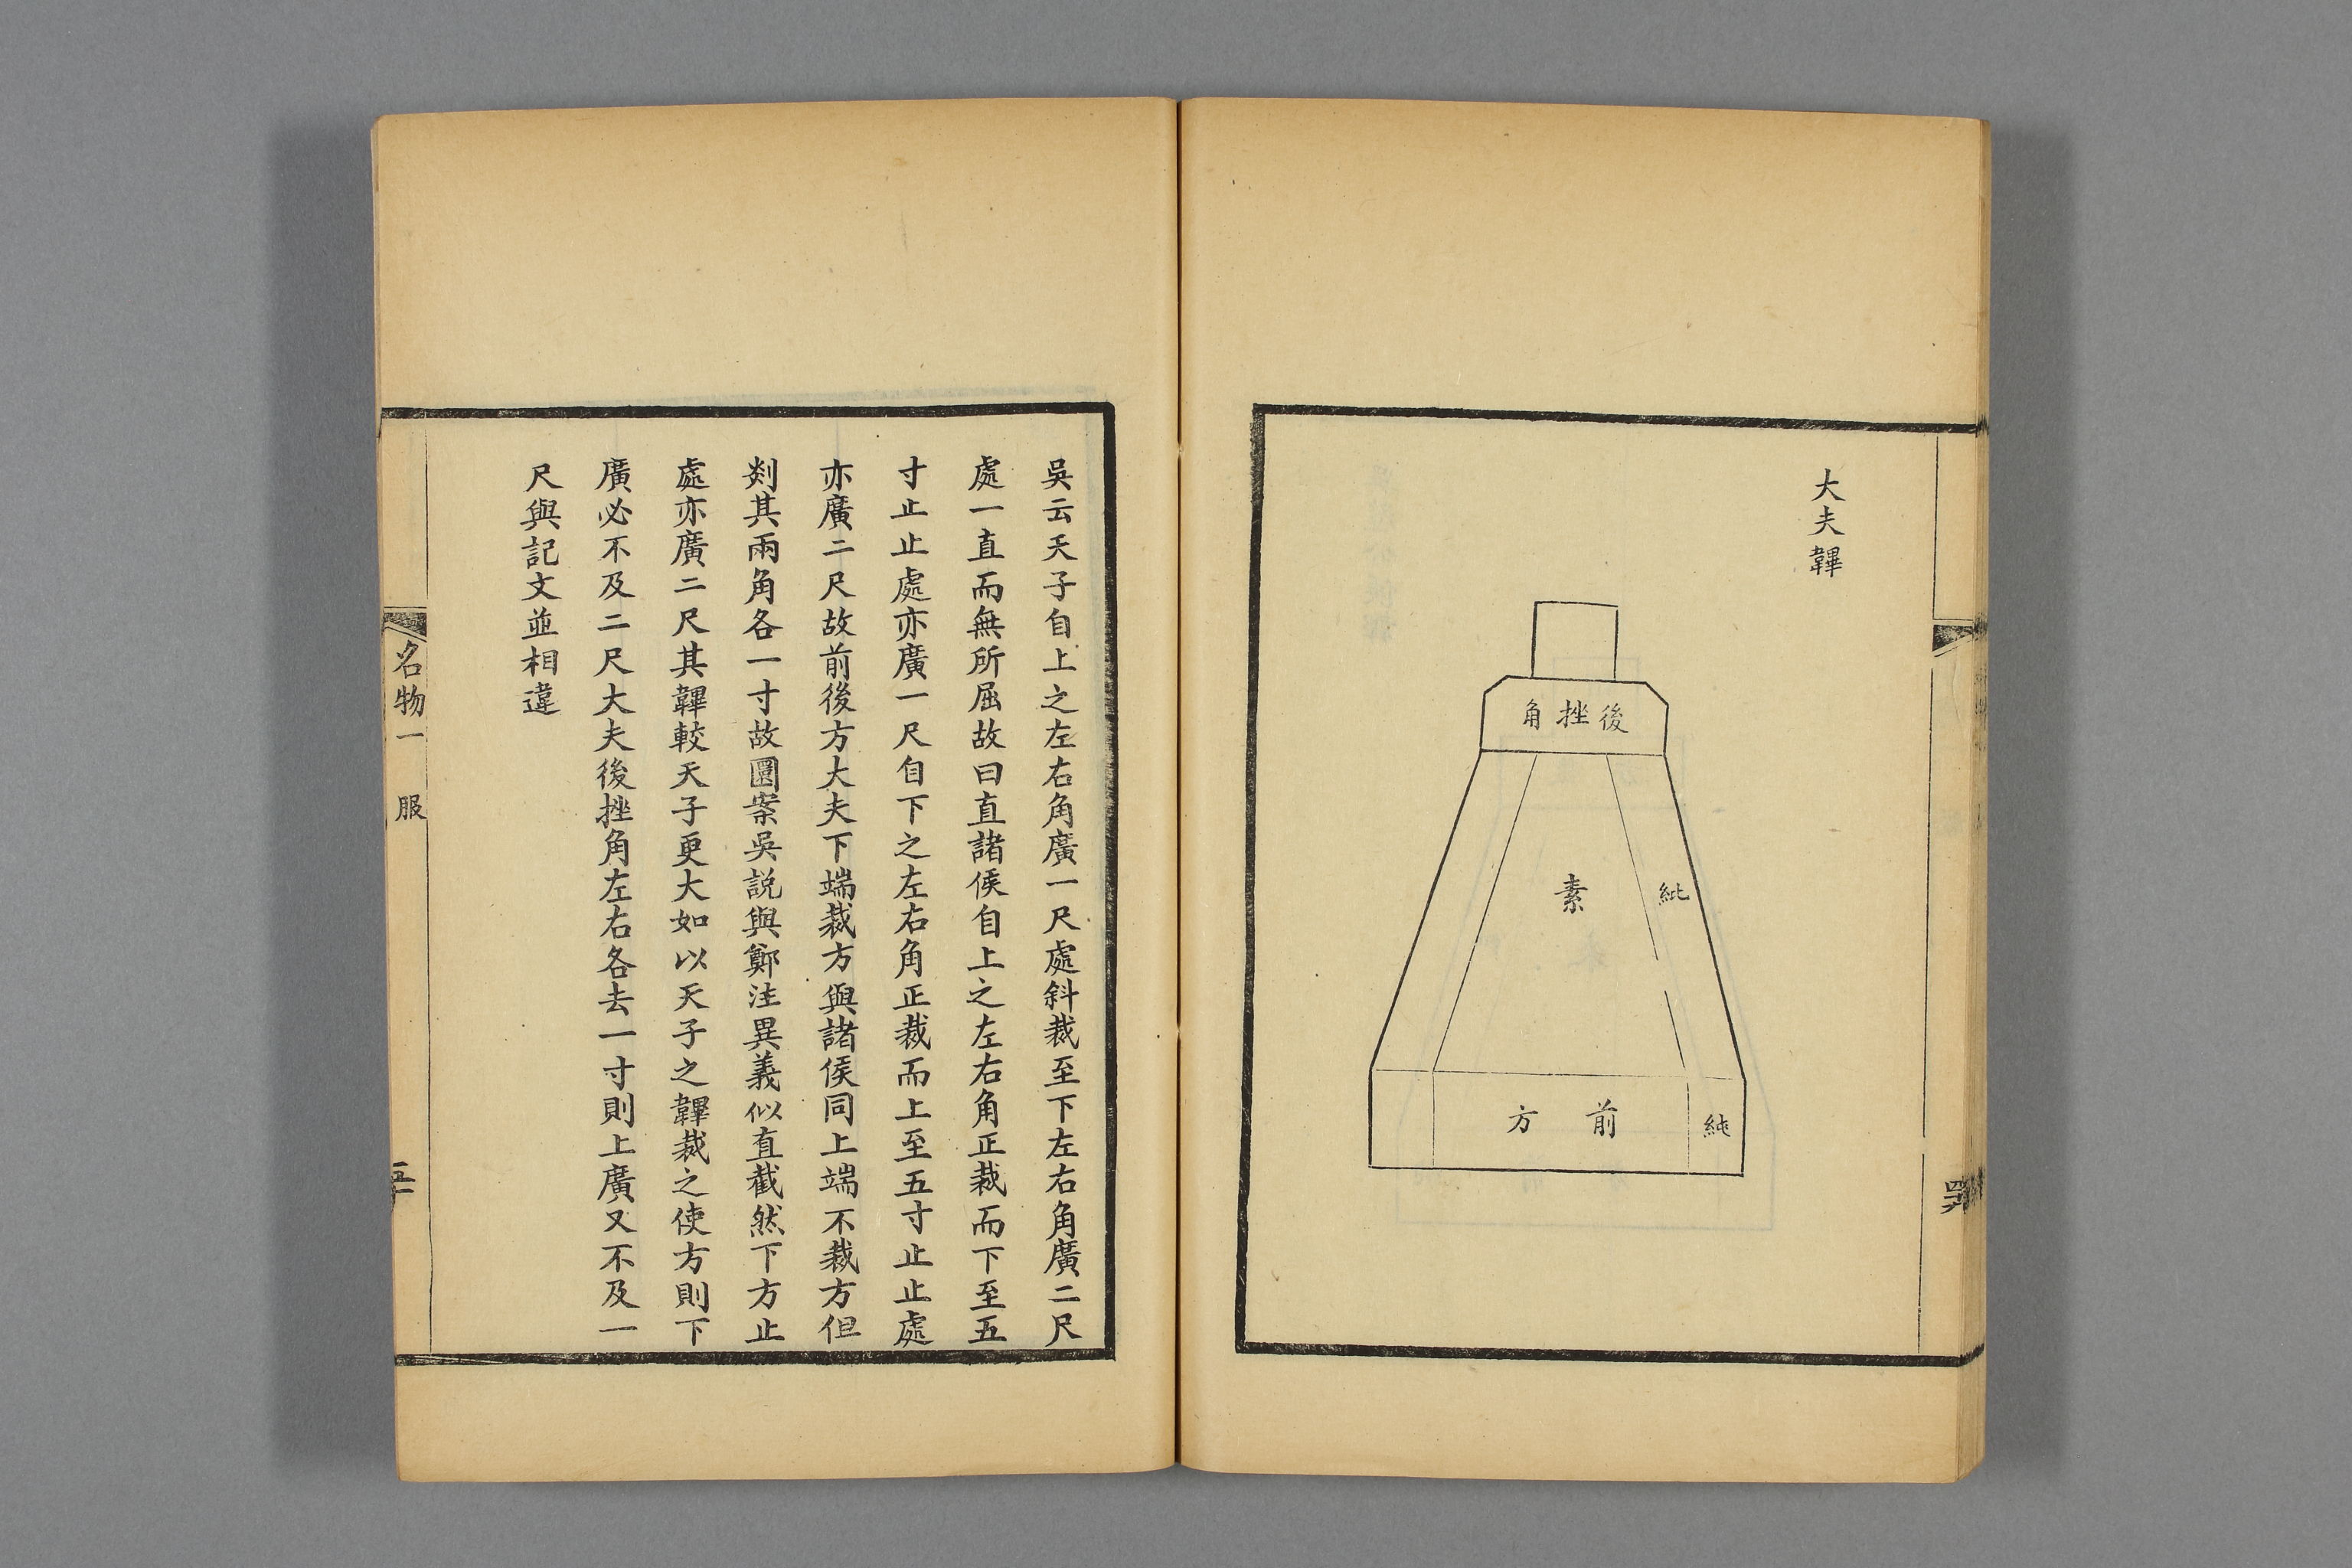 大夫韠
後挫角
素
紕
前方
純
吳云天子自上之左右角廣一尺處斜裁至下左右角廣二尺
處一直而無所屈故曰直諸侯自上之左右角正裁而下至五
寸止止處亦廣一尺自下之左右角正裁而上至五寸止止處
亦廣二尺故前後方大夫下端裁方與諸侯同上端不裁方但
剡其兩角各一寸故圜案吳説與鄭注異義似直截然下方止
處亦廣二尺其韠較天子更大如以天子之韠裁之使方則下
廣必不及二尺大夫後挫角左右各去一寸則上廣又不及一
尺與記文並相違
名物一 服